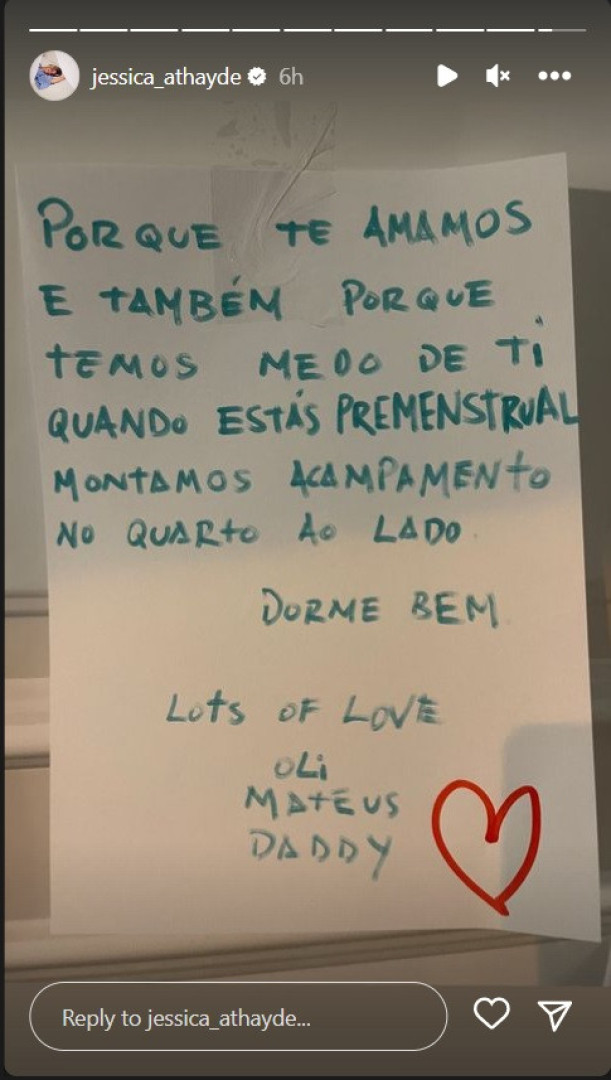 jessica_athayde 6h
PORQUE TE AMAMOS
E TAMBÉM PORQUE
TEMOS MEDO DE TI
QUANDO ESTÁS PREMENSTRUAL
MONTAMOS ACAMPAMENTO
NO QUARTO AO LADO.
DORME BEM
LOTS OF LOVE
OLI
MATEUS
DADDY
Reply to jessica_athayde...